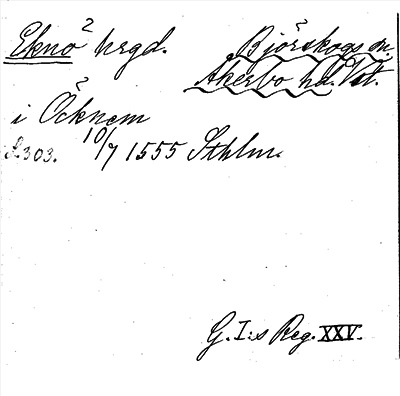 Eknö² hrgd. Björskogs sn.
Åkerbo hd. Vst.
i Öcknem²
S.303. 10/7 1555 Sthlm.
G.I:s Reg. XXV.